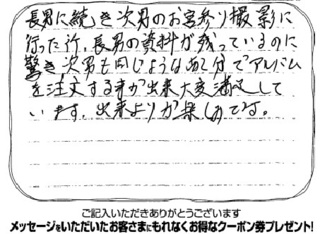 長男に続き次男のお宮参り撮影に
行った所、長男の資料が残っているのに
驚き次男も同じような形でアルバム
を注文する事が出来大変満足して
います。出来上りが楽しみです。
ご記入いただきありがとうございます
メッセージをいただいたお客さまにもれなくお得なクーポン券プレゼント!